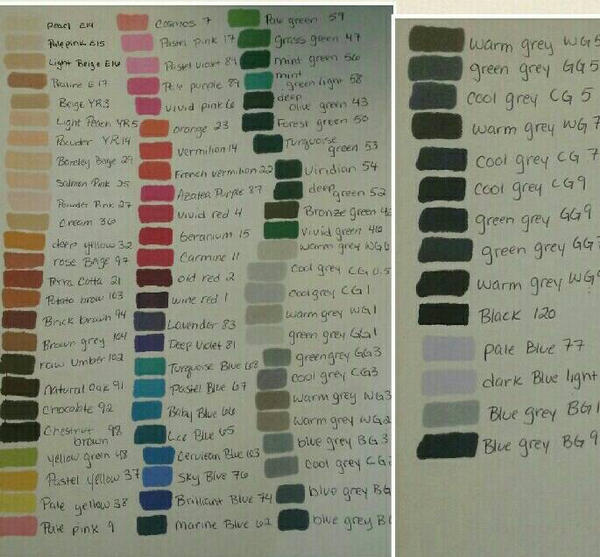 Pearl E14
Pale pink E15
Light Beige E16
Praline E17
Beige YR3
Light Peach YR5
Powder YR14
Barely Beige 29
Salmon Pink 25
Powder Pink 27
Cream 36
deep yellow 32
rose BAGe 97
Terra Cotta 21
Potato brow 103
Brick brown 94
Brown grey 104
raw Umber 102
Natural Oak 91
Chocolate 92
Chestnut 98
brown
yellow green 48
Pastel yellow 37
Pale yellow 38
Pale pink 9
Cosmos 7
Pastel Pink 17
Pastel violet 84
Pale purple 89
vivid pink 6
orange 23
Vermilion 14
French vermilion 22
Azalea Purple 87
Vivid red 4
Geranium 15
Carmine 11
old red 2
wine red 1
Lavender 83
Deep Violet 81
Turquoise Blue 68
Pastel Blue 67
Baby Blue 66
Ice Blue 65
Cerulean Blue 63
Sky Blue 76
Brilliant Blue 74
Marine Blue 62
Pale green 59
Grass green 47
mint green 56
mint
green light 58
deep
olive green 43
Forest green 50
Turquoise
green 53
Viridian 54
deep
green 52
Bronze green 42
Vivid green 46
warm grey WG
Cool grey CG 0.5
cool grey CG 1
warm grey WG1
green grey GG1
green grey GG3
cool grey CG3
Warm grey WG3
Warm grey WG2
blue grey BG3
Cool grey CG
blue grey BG
blue grey B
Warm grey WG5
green grey GG5
Cool grey CG 5
Warm grey WG 7
Cool grey CG 7
Cool grey CG9
green grey GG9
green grey GG
Warm grey WG9
Black 120
pale Blue 77
dark Blue light
Blue grey BG1
Blue grey BG 9